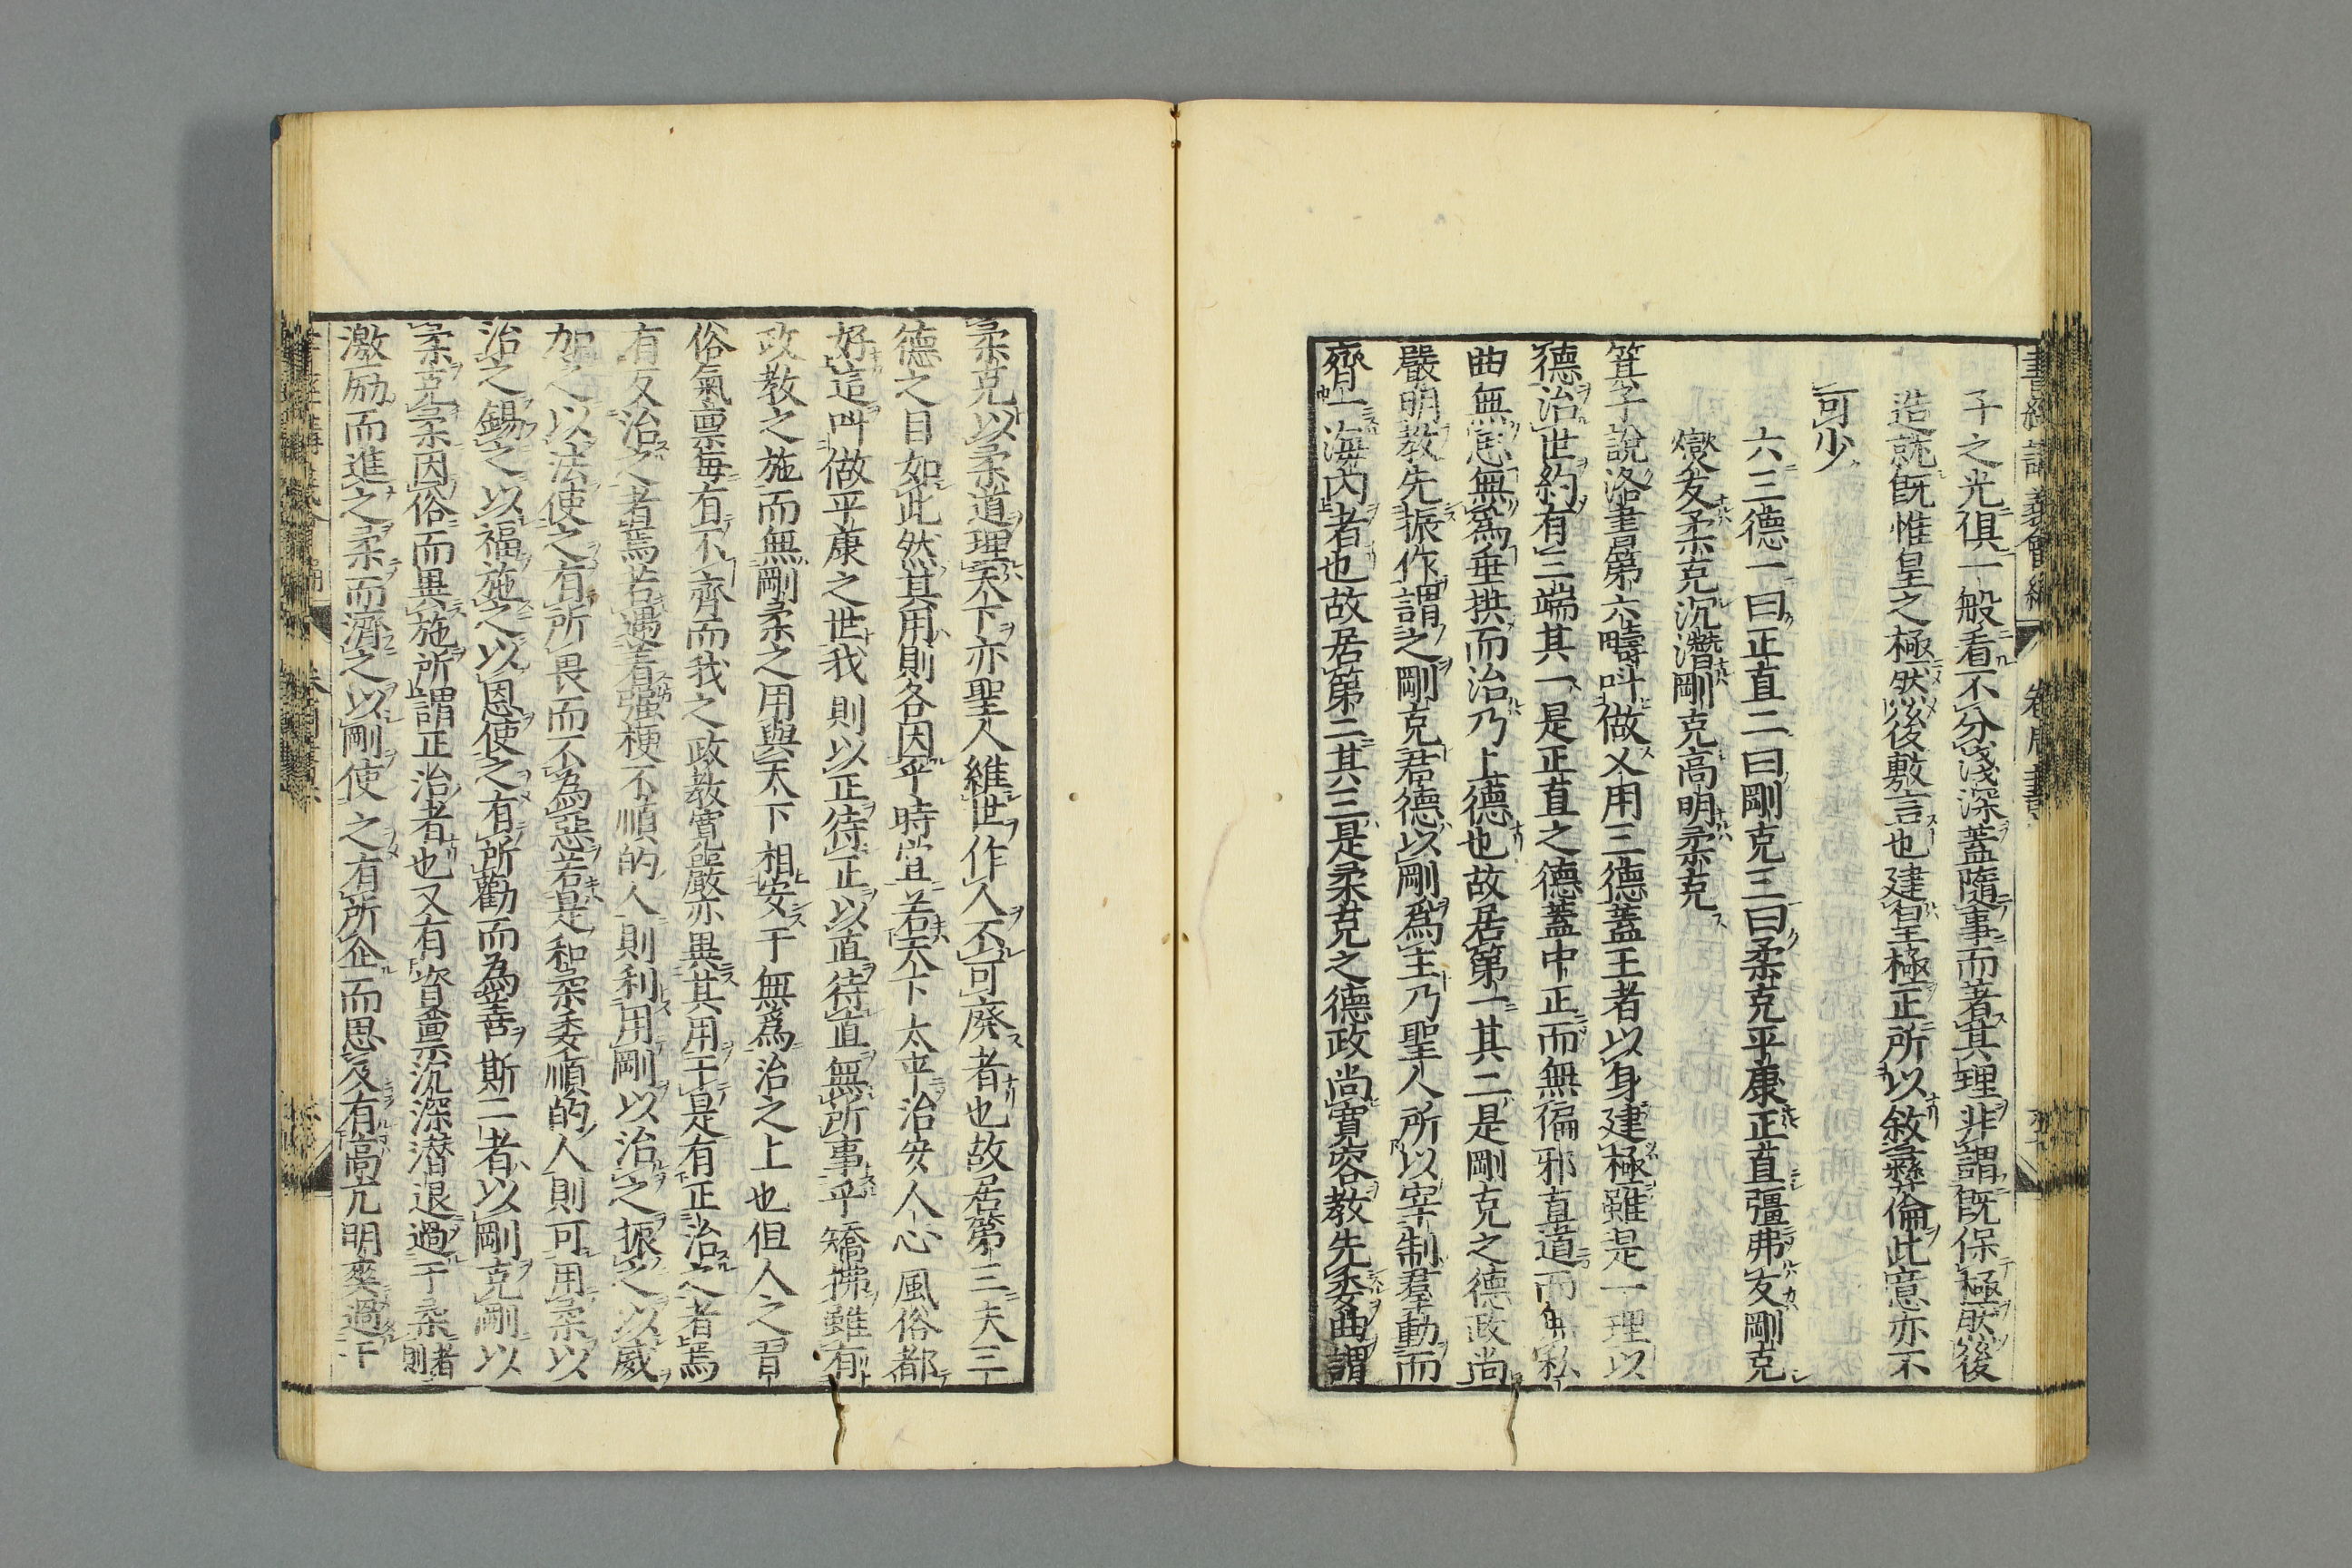 子之光俱一般看不分淺深蓋隨事而著其理非謂既保極然後
造就既惟皇之極然後敷言也建皇極正所以敘彝倫此意亦不
可少
六三德一曰正直二曰剛克三曰柔克平康正直彊弗友剛克
燮友柔克沉潛剛克高明柔克
箕子說洛書第六疇叫做乂用三德蓋王者以身建極雖是一理以
德治世約有三端其一是正直之德蓋中正而無偏邪直道而無私
曲無思無為垂拱而治乃上德也故居第一其二是剛克之德政尚
嚴明教先振作謂之剛克君德以剛為主乃聖人所以宰制羣動而
齊一海內者也故居第二其三是柔克之德政尚寬容教先委曲謂
柔克以柔道理天下亦聖人維世作人不可廢者也故居第三夫三
德之目如此然其用則各因乎時宜若天下太平治安人心風俗都
好這叫做平康之世我則以正待正以直待直無所事乎矯拂雖有
政教之施而無剛柔之用與天下相安于無為治之上也但人之習
俗氣禀每有不齊而我之政教寬嚴亦異其用于是有正治之者焉
有反治之者焉若遇着強梗不順的人則利用剛以治之振之以威
加之以法使之有所畏而不為惡若是和柔委順的人則可用柔以
治之錫之以福施之以恩使之有所勸而為善斯二者以剛克剛以
柔克柔因俗而異施所謂正治者也又有資禀沉深潜退過于柔者則
激励而進之柔而濟之以剛使之有所企而思及有高亢明爽過于